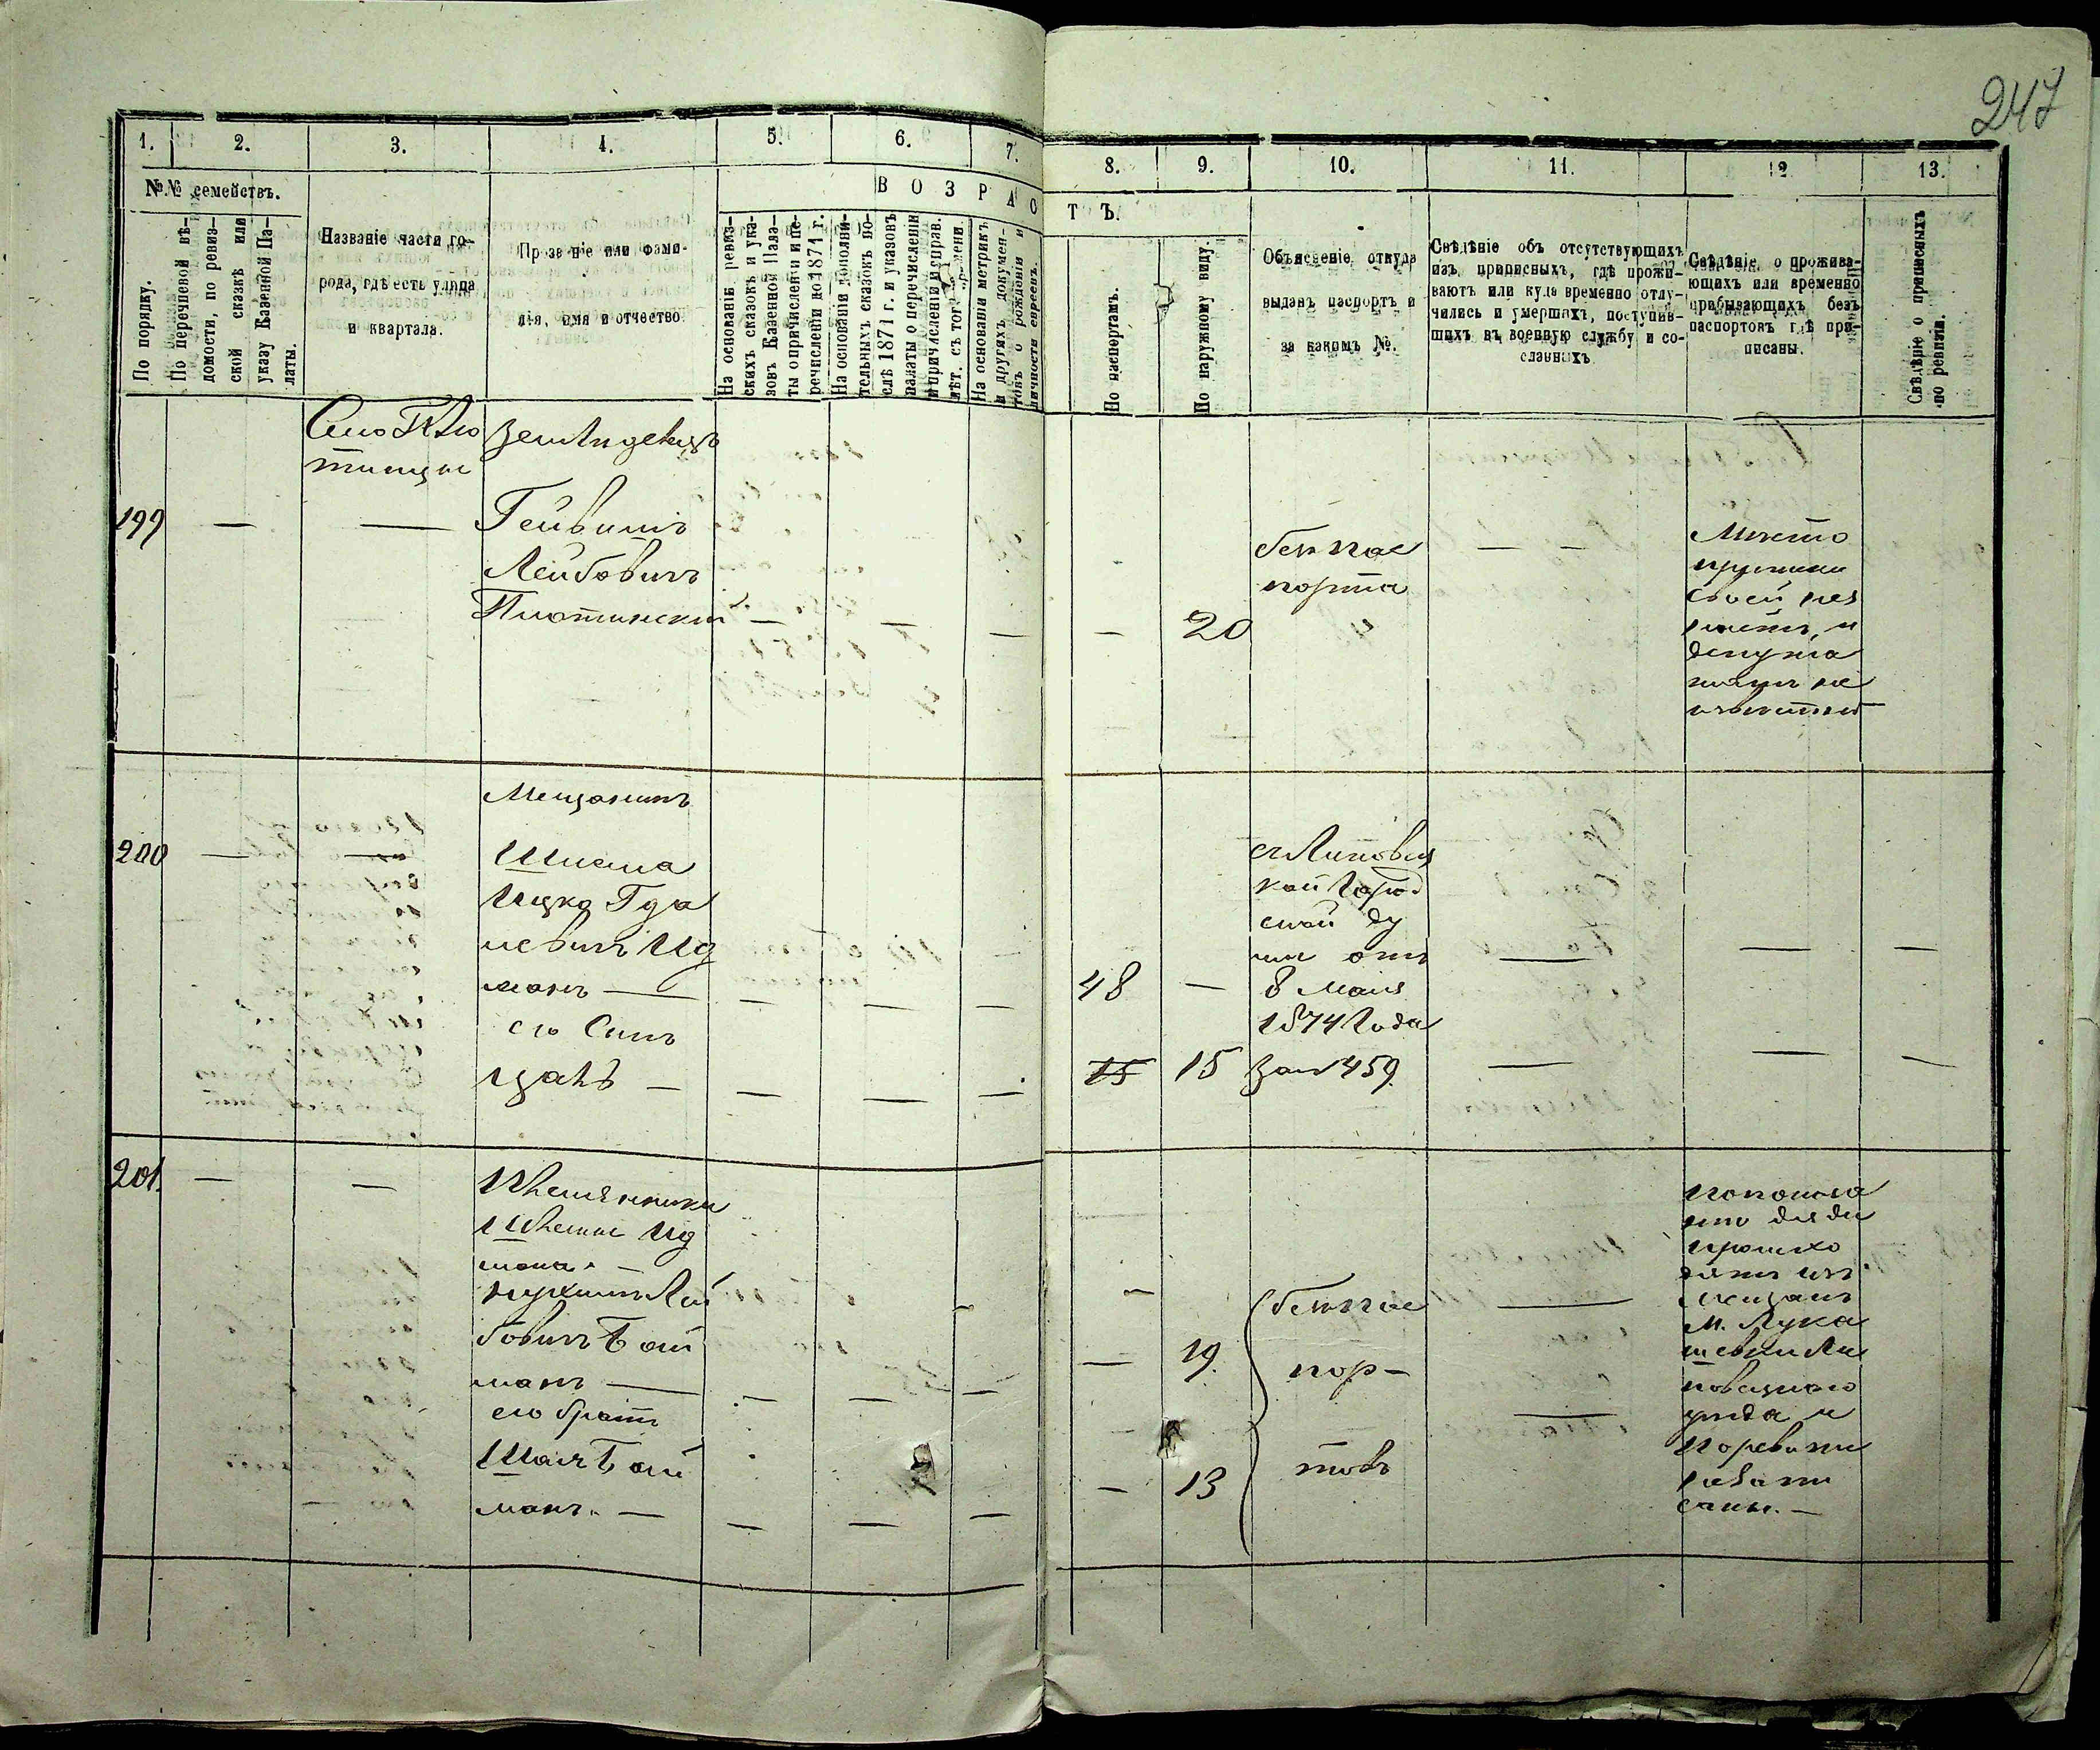 247
1. 2. 3. 4. 5. 6. 7. 8. 9. 10. 11. 12 13.
№№ семействъ.
ВОЗРАСТЪ.
По порядку.
По перечневой вѣ-
домости, по ревиз-
ской сказкѣ или
указу Казенной Па-
латы.
Названіе части го-
рода, гдѣ есть улица
и квартала.
Прозваніе или фами-
лія, имя и отчество.
На основаніи ревиз-
скихъ сказокъ и ука-
зовъ Казенной Пала-
ты о причисленіи и пе-
речисленіи до 1871 г.
На основаніи дополни-
тельныхъ сказокъ по-
слѣ 1871 г. и указовъ
палаты о перечисленіи
и причисленіи исправ.
лѣт. съ того времени.
На основаніи метрикъ
и другихъ докумен-
товъ о рожденіи и
личности евреевъ.
По паспортамъ.
По наружному виду.
Объясненіе откуда
выданъ паспортъ и
за какимъ №.
Свѣдѣніе объ отсутствующихъ
изъ приписныхъ, гдѣ прожи-
ваютъ или куда временно отлу-
чились и умершихъ, поступив-
шихъ въ военную службу и со-
сланныхъ
Свѣдѣніе о прожива-
ющихъ или временно
прибывающихъ безъ
паспортовъ гдѣ при-
писаны.
Свѣдѣніе о приписныхъ
по ревизіи.
Село Плю
тинцы
Землидѣлецъ
199 — —
Гейвишъ
Лейбовичъ
Плютинскій — — — — 20
безъ пас
порта
— —
Мѣсто
приписки
своей не з
наетъ, и
депута
тамъ не
извѣстно
Мещанинъ
200 — —
Шлема
Ицко Гда
левичъ Ид
манъ — — — — 48 —
его Сынъ
— — — — 15 15
кой Город
ской Ду
мы отъ
8 Мая
1874 Года
за № 459.
— — —
— — —
201. — —
Племянники
Шлемы Ид
мана. —
Лей
бовичъ Бой
манъ — — — — — 19.
его братъ
Бой
манъ. — — — — — 13
безъ пас
пор-
товъ
—
—
По показа
нію дяди
происхо
дятъ изъ
мещанъ
м. Лука
шевки Ли
повецкаго
уѣзда и
по ревизіи
саны. —